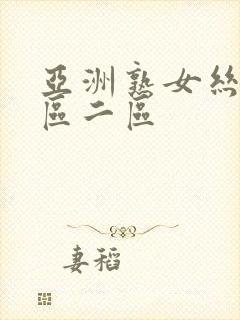 亞洲熟女絲
區二區
妻稻